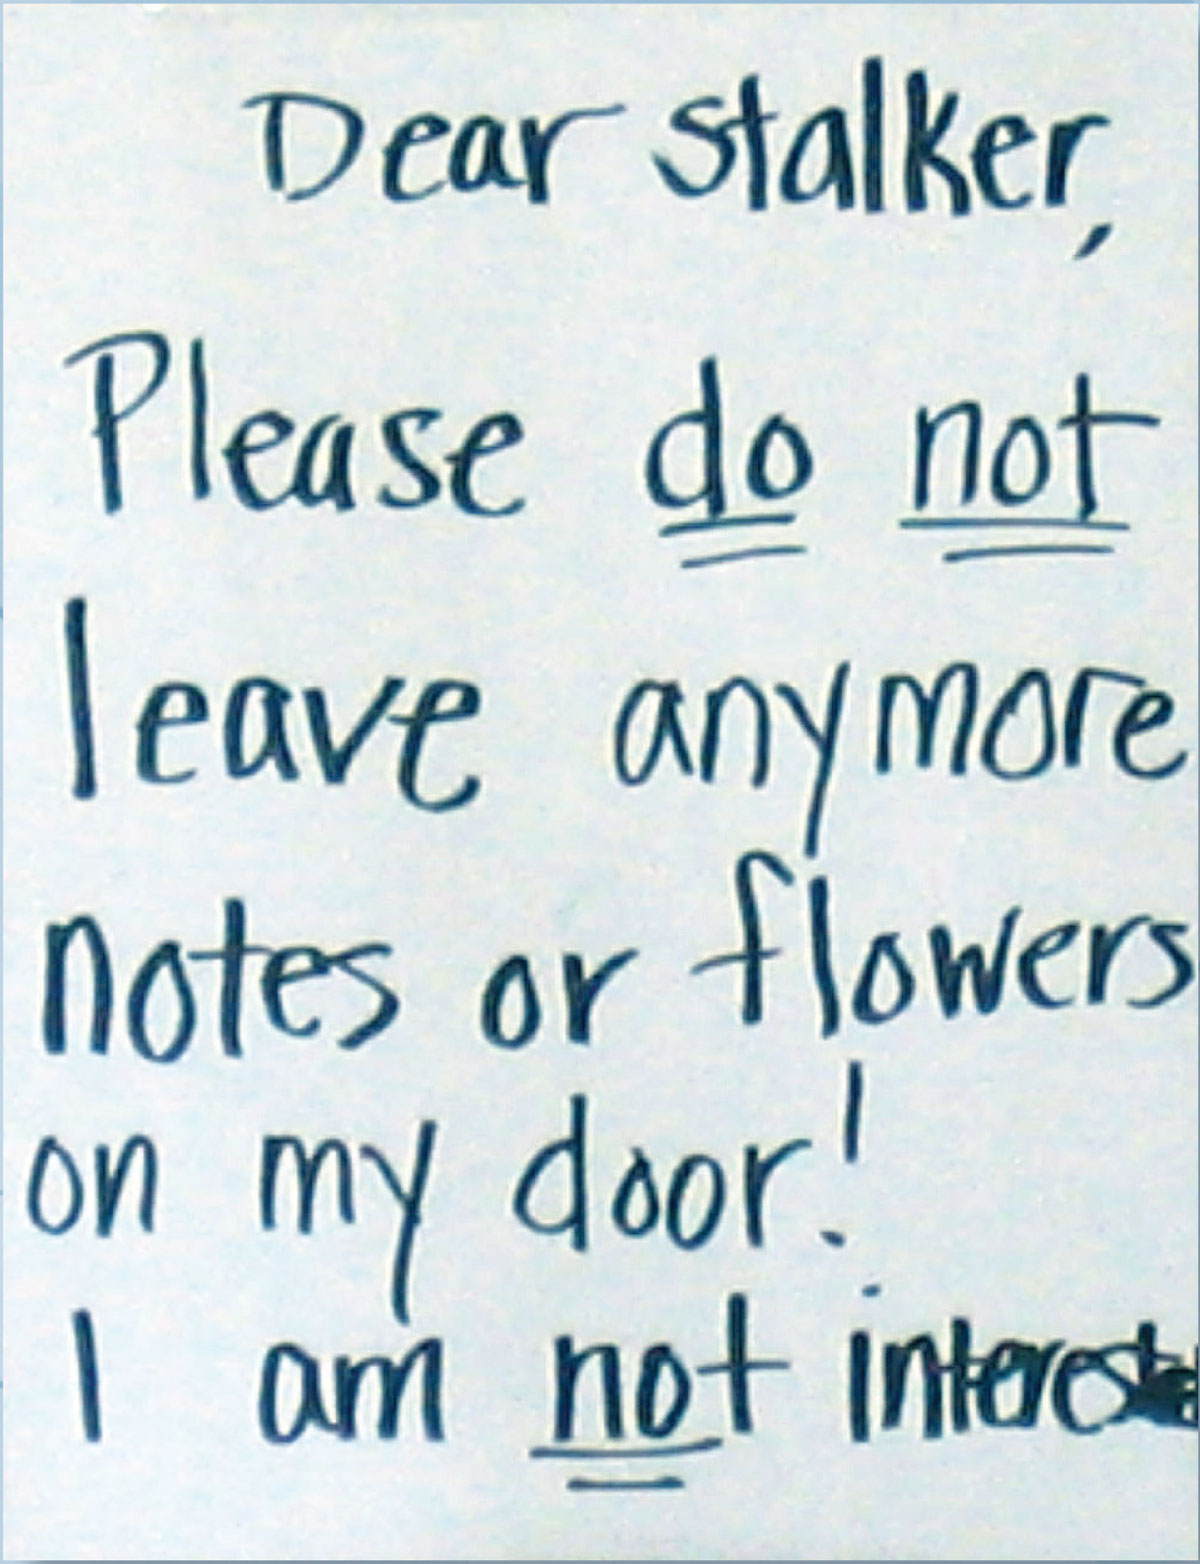 Dear stalker,
Please do not
leave anymore
notes or flowers
on my door!
I am not interested